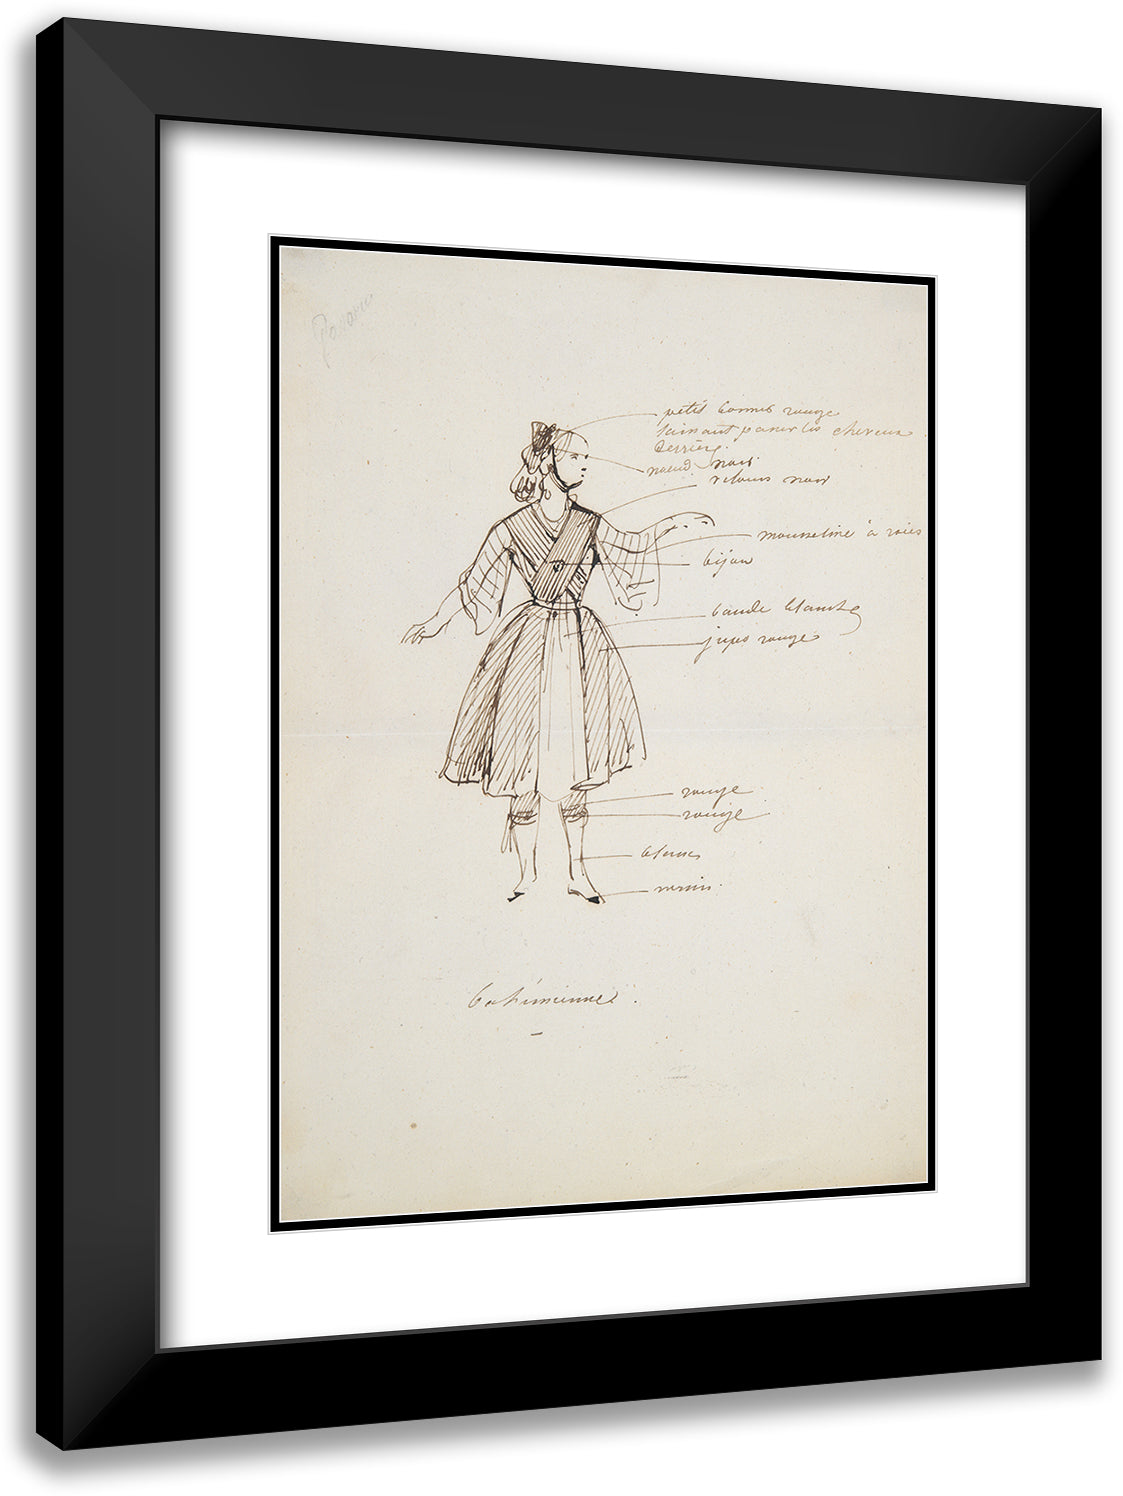 petit bonnet rouge
laissant passer les cheveux
derrière
nœud noir
velours noir
mousseline à raies
bijou
bande blanche
jupes rouge
rouge
rouge
blanc
bohémienne.